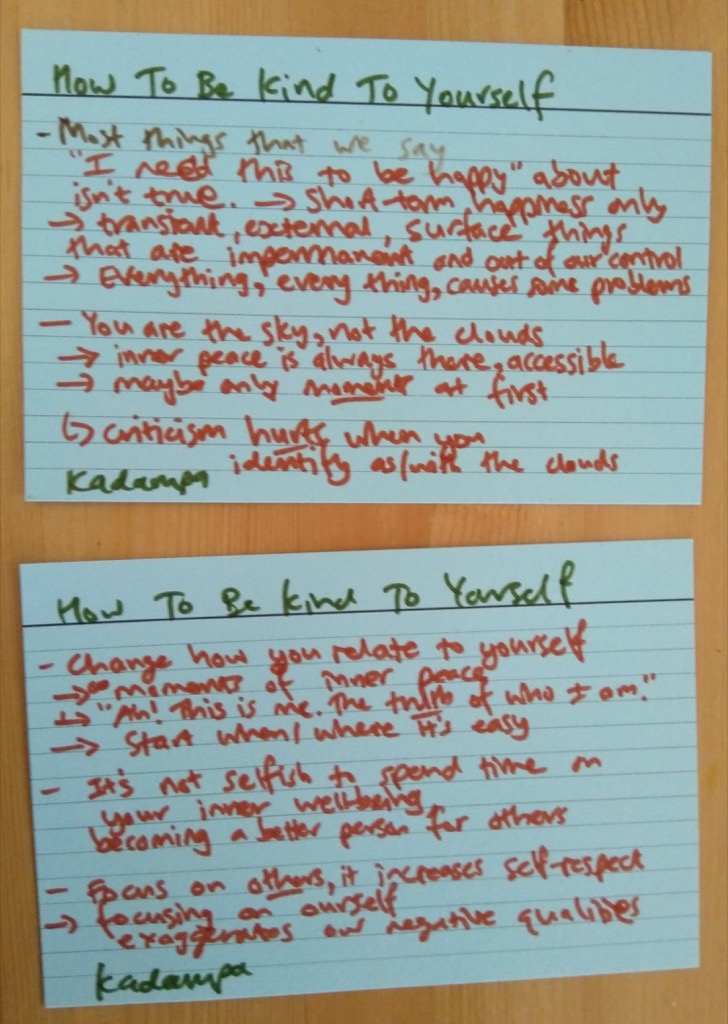 How To Be Kind To Yourself
- Most things that we say
"I need this to be happy" about
isn't true. → Short-term happiness only
→ transient, external, surface things
that are impermanent and out of our control
→ Everything, every thing, causes some problems
- You are the sky, not the clouds
→ inner peace is always there, accessible
→ maybe only moments at first
↳ criticism hurts when you
identify as/with the clouds
Kadampa
How To Be Kind To Yourself
- Change how you relate to yourself
→ moments of inner peace
↳ "Ah! This is me. The truth of who I am."
→ Start when/where it's easy
- It's not selfish to spend time on
your inner well-being
becoming a better person for others
- Focus on others, it increases self-respect
→ focusing on ourself
exaggerates our negative qualities
Kadampa